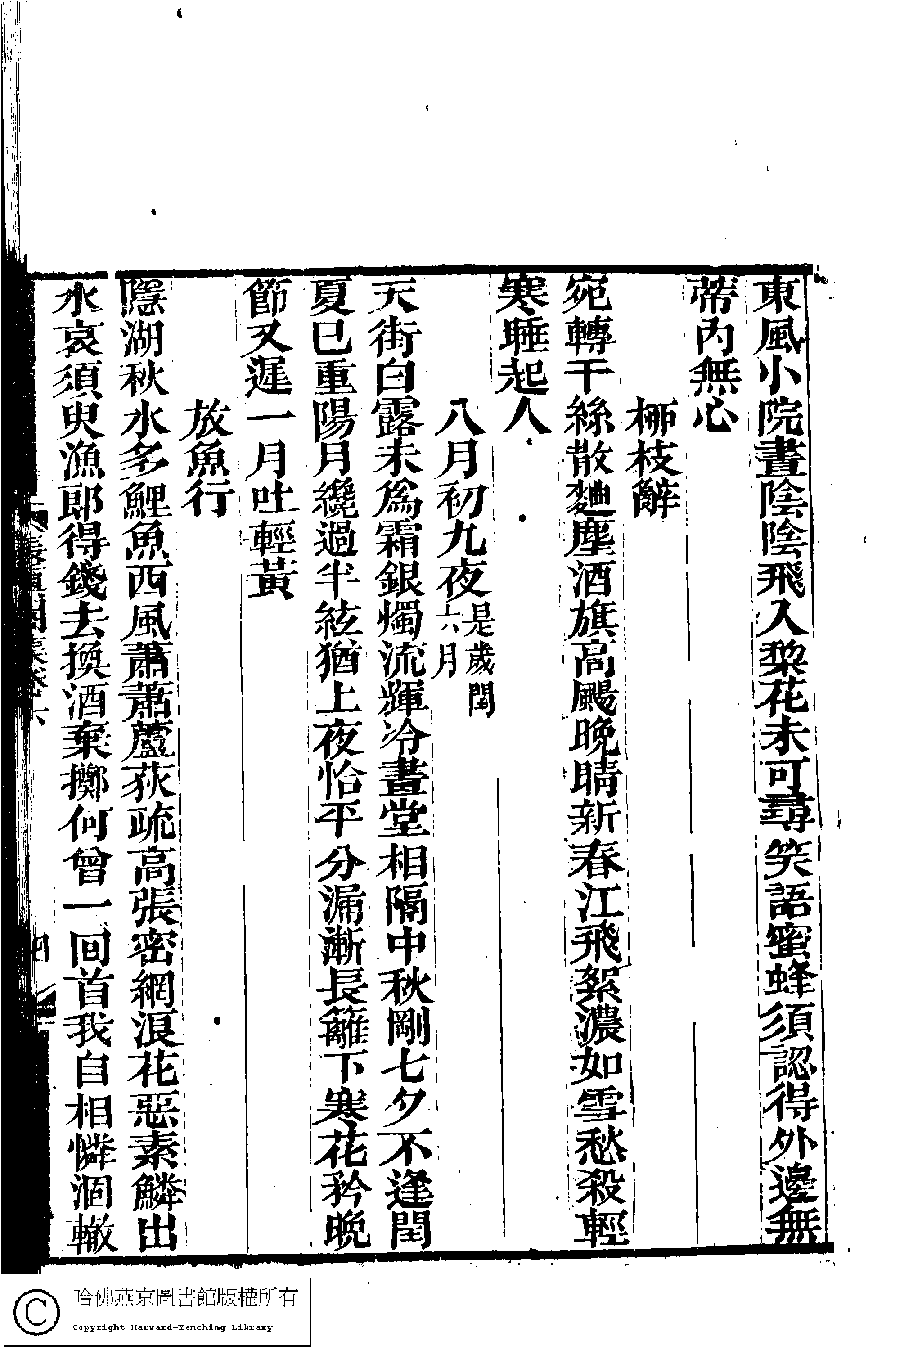 東風小院晝陰陰飛入梨花未可尋笑語蜜蜂須認得外邊無
蒂內無心
柳枝辭
宛轉千絲散麯塵酒旗高颺晚晴新春江飛絮濃如雪愁殺輕
寒睡起人
八月初九夜是歲閏六月
天街白露未爲霜銀燭流輝冷畫堂相隔中秋剛七夕不逢閏
夏巳重陽月纔過半絃猶上夜恰平分漏漸長籬下寒花矜晚
節又遲一月吐輕黃
放魚行
隱湖秋水多鯉魚西風蕭蕭蘆荻疏高張密網浪花惡素鱗出
水哀須臾漁郎得錢去換酒棄擲何曾一回首我自相憐涸轍
哈佛燕京圖書館版權所有
Copyright Harvard-Yenching Library